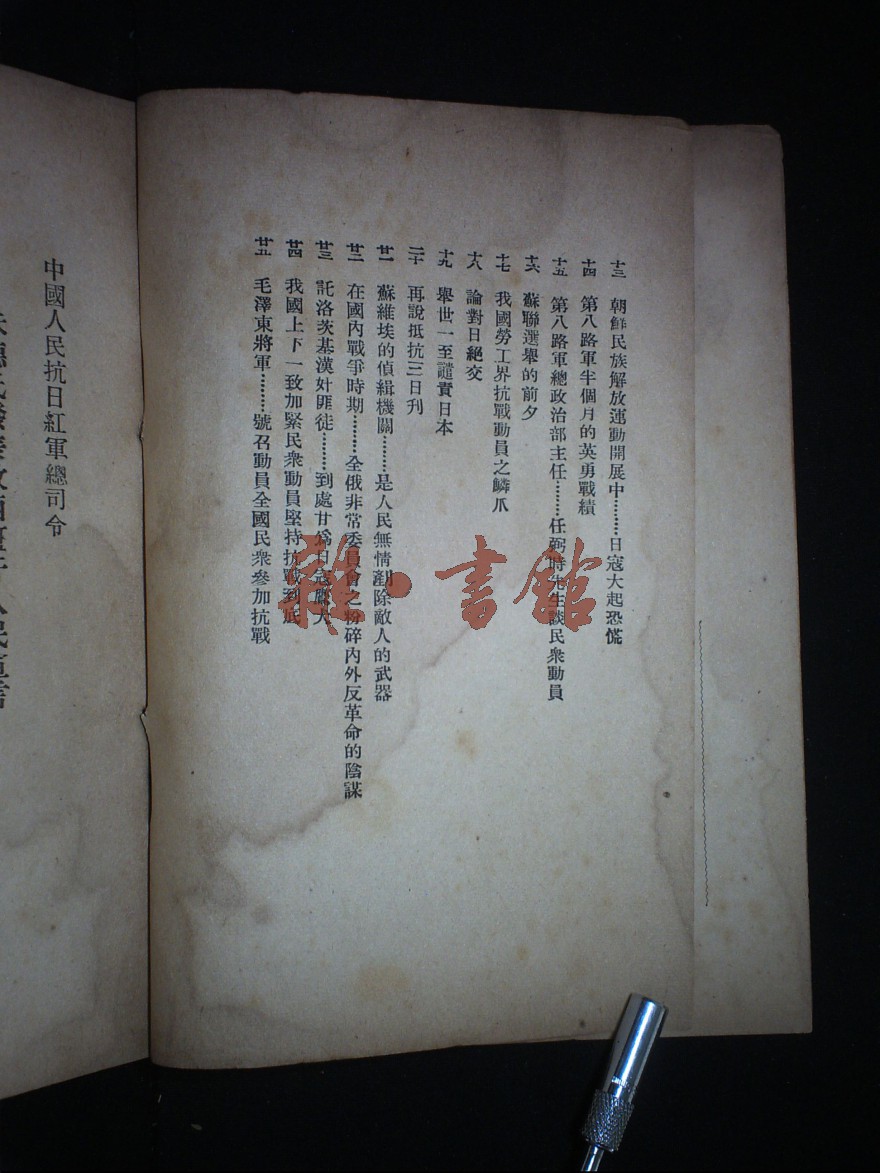 十三 朝鮮民族解放運動開展中………日寇大起恐慌
十四 第八路軍半個月的英勇戰績
十五 第八路軍總政治部主任………任弼時先生談民衆動員
十六 蘇聯選舉的前夕
十七 我國勞工界抗戰動員之鱗爪
十八 論對日絕交
十九 舉世一至譴責日本
二十 再說抵抗三日刊
廿一 蘇維埃的偵緝機關………是人民無情剷除敵人的武器
廿二 在國內戰爭時期………全俄非常委員會之粉碎內外反革命的陰謀
廿三 託洛茨基漢奸匪徒………到處甘爲日寇鷹犬
廿四 我國上下一致加緊民衆動員堅持抗戰到底
廿五 毛澤東將軍………號召動員全國民衆參加抗戰
中國人民抗日紅軍總司令
雜·書館